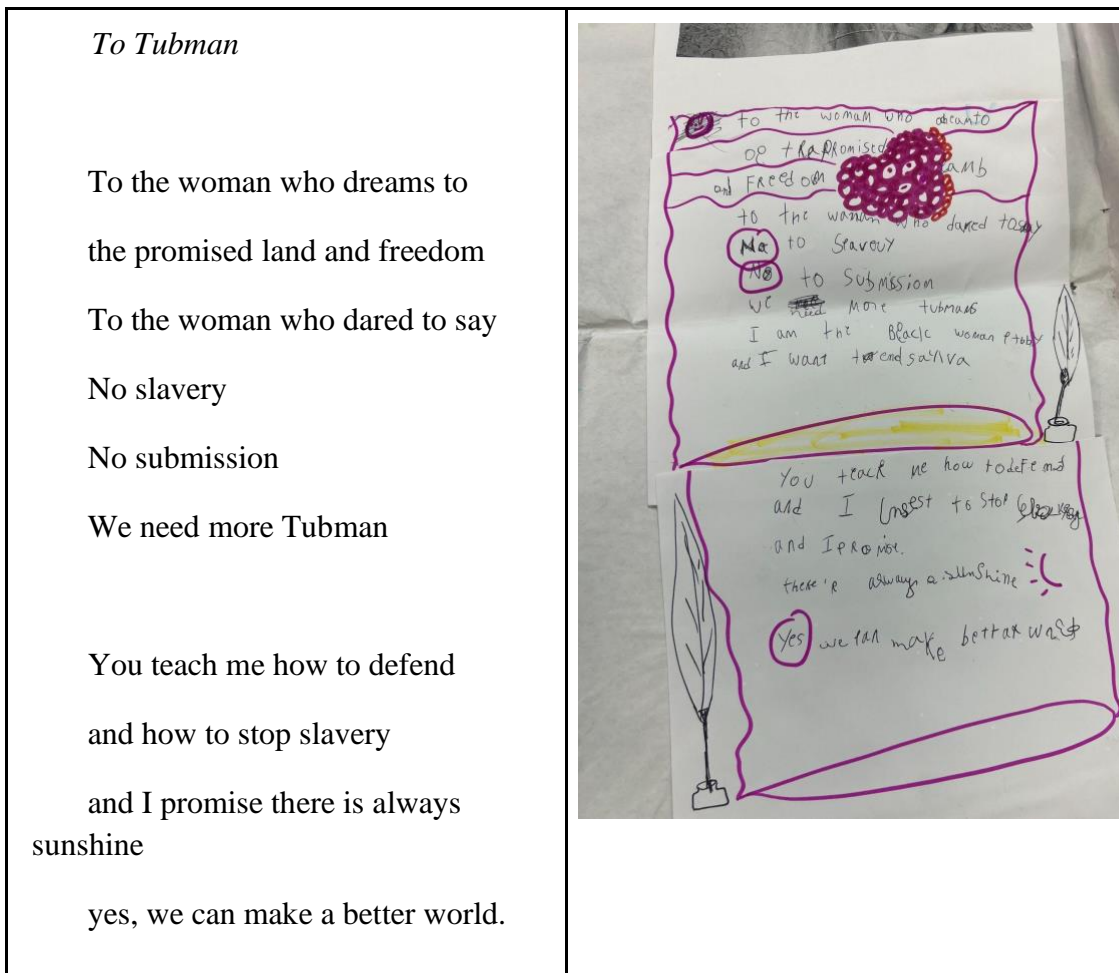 To Tubman
To the woman who dreams to
the promised land and freedom
To the woman who dared to say
No slavery
No submission
We need more Tubman
You teach me how to defend
and how to stop slavery
and I promise there is always
sunshine
yes, we can make a better world.
to the womam who
Promised
and FReedom
to the woman who dared to say
No to Seavouy
No to Submission
we need more tubmans
I am the Black woman
and I want
You teach me how to defend
and I to stop
and I promise.
there's always a sunshine
yes we can make bettar